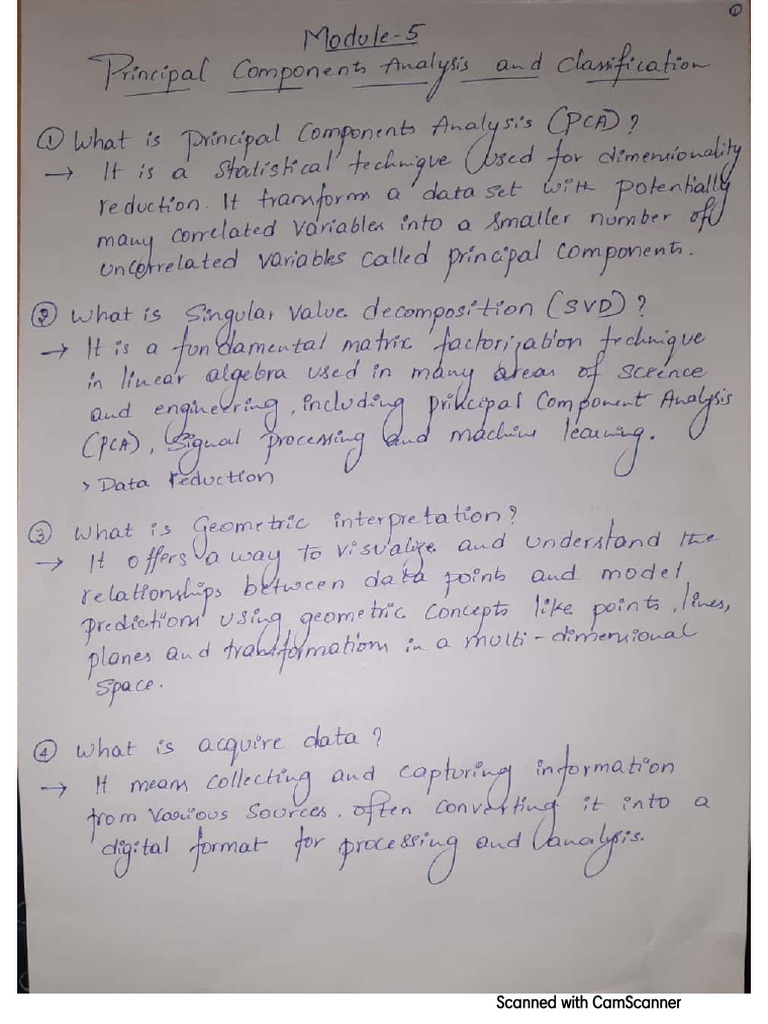 ①
Module-5
Principal Components Analysis and Classification
① What is Principal Components Analysis (PCA)?
→ It is a statistical technique used for dimensionality
reduction. It transform a data set with potentially
many correlated variables into a smaller number of
uncorrelated variables called principal components.
② What is Singular value decomposition (SVD)?
→ It is a fundamental matrix factorization technique
in linear algebra used in many areas of science
and engineering, including principal Component Analysis
(PCA), signal processing and machine learning.
> Data reduction
③ What is Geometric interpretation?
→ It offers a way to visualize and understand the
relationships between data points and model
predictions using geometric concepts like points, lines,
planes and transformations in a multi-dimensional
space.
④ What is acquire data?
→ It means collecting and capturing information
from various sources. often converting it into a
digital format for processing and analysis.
Scanned with CamScanner